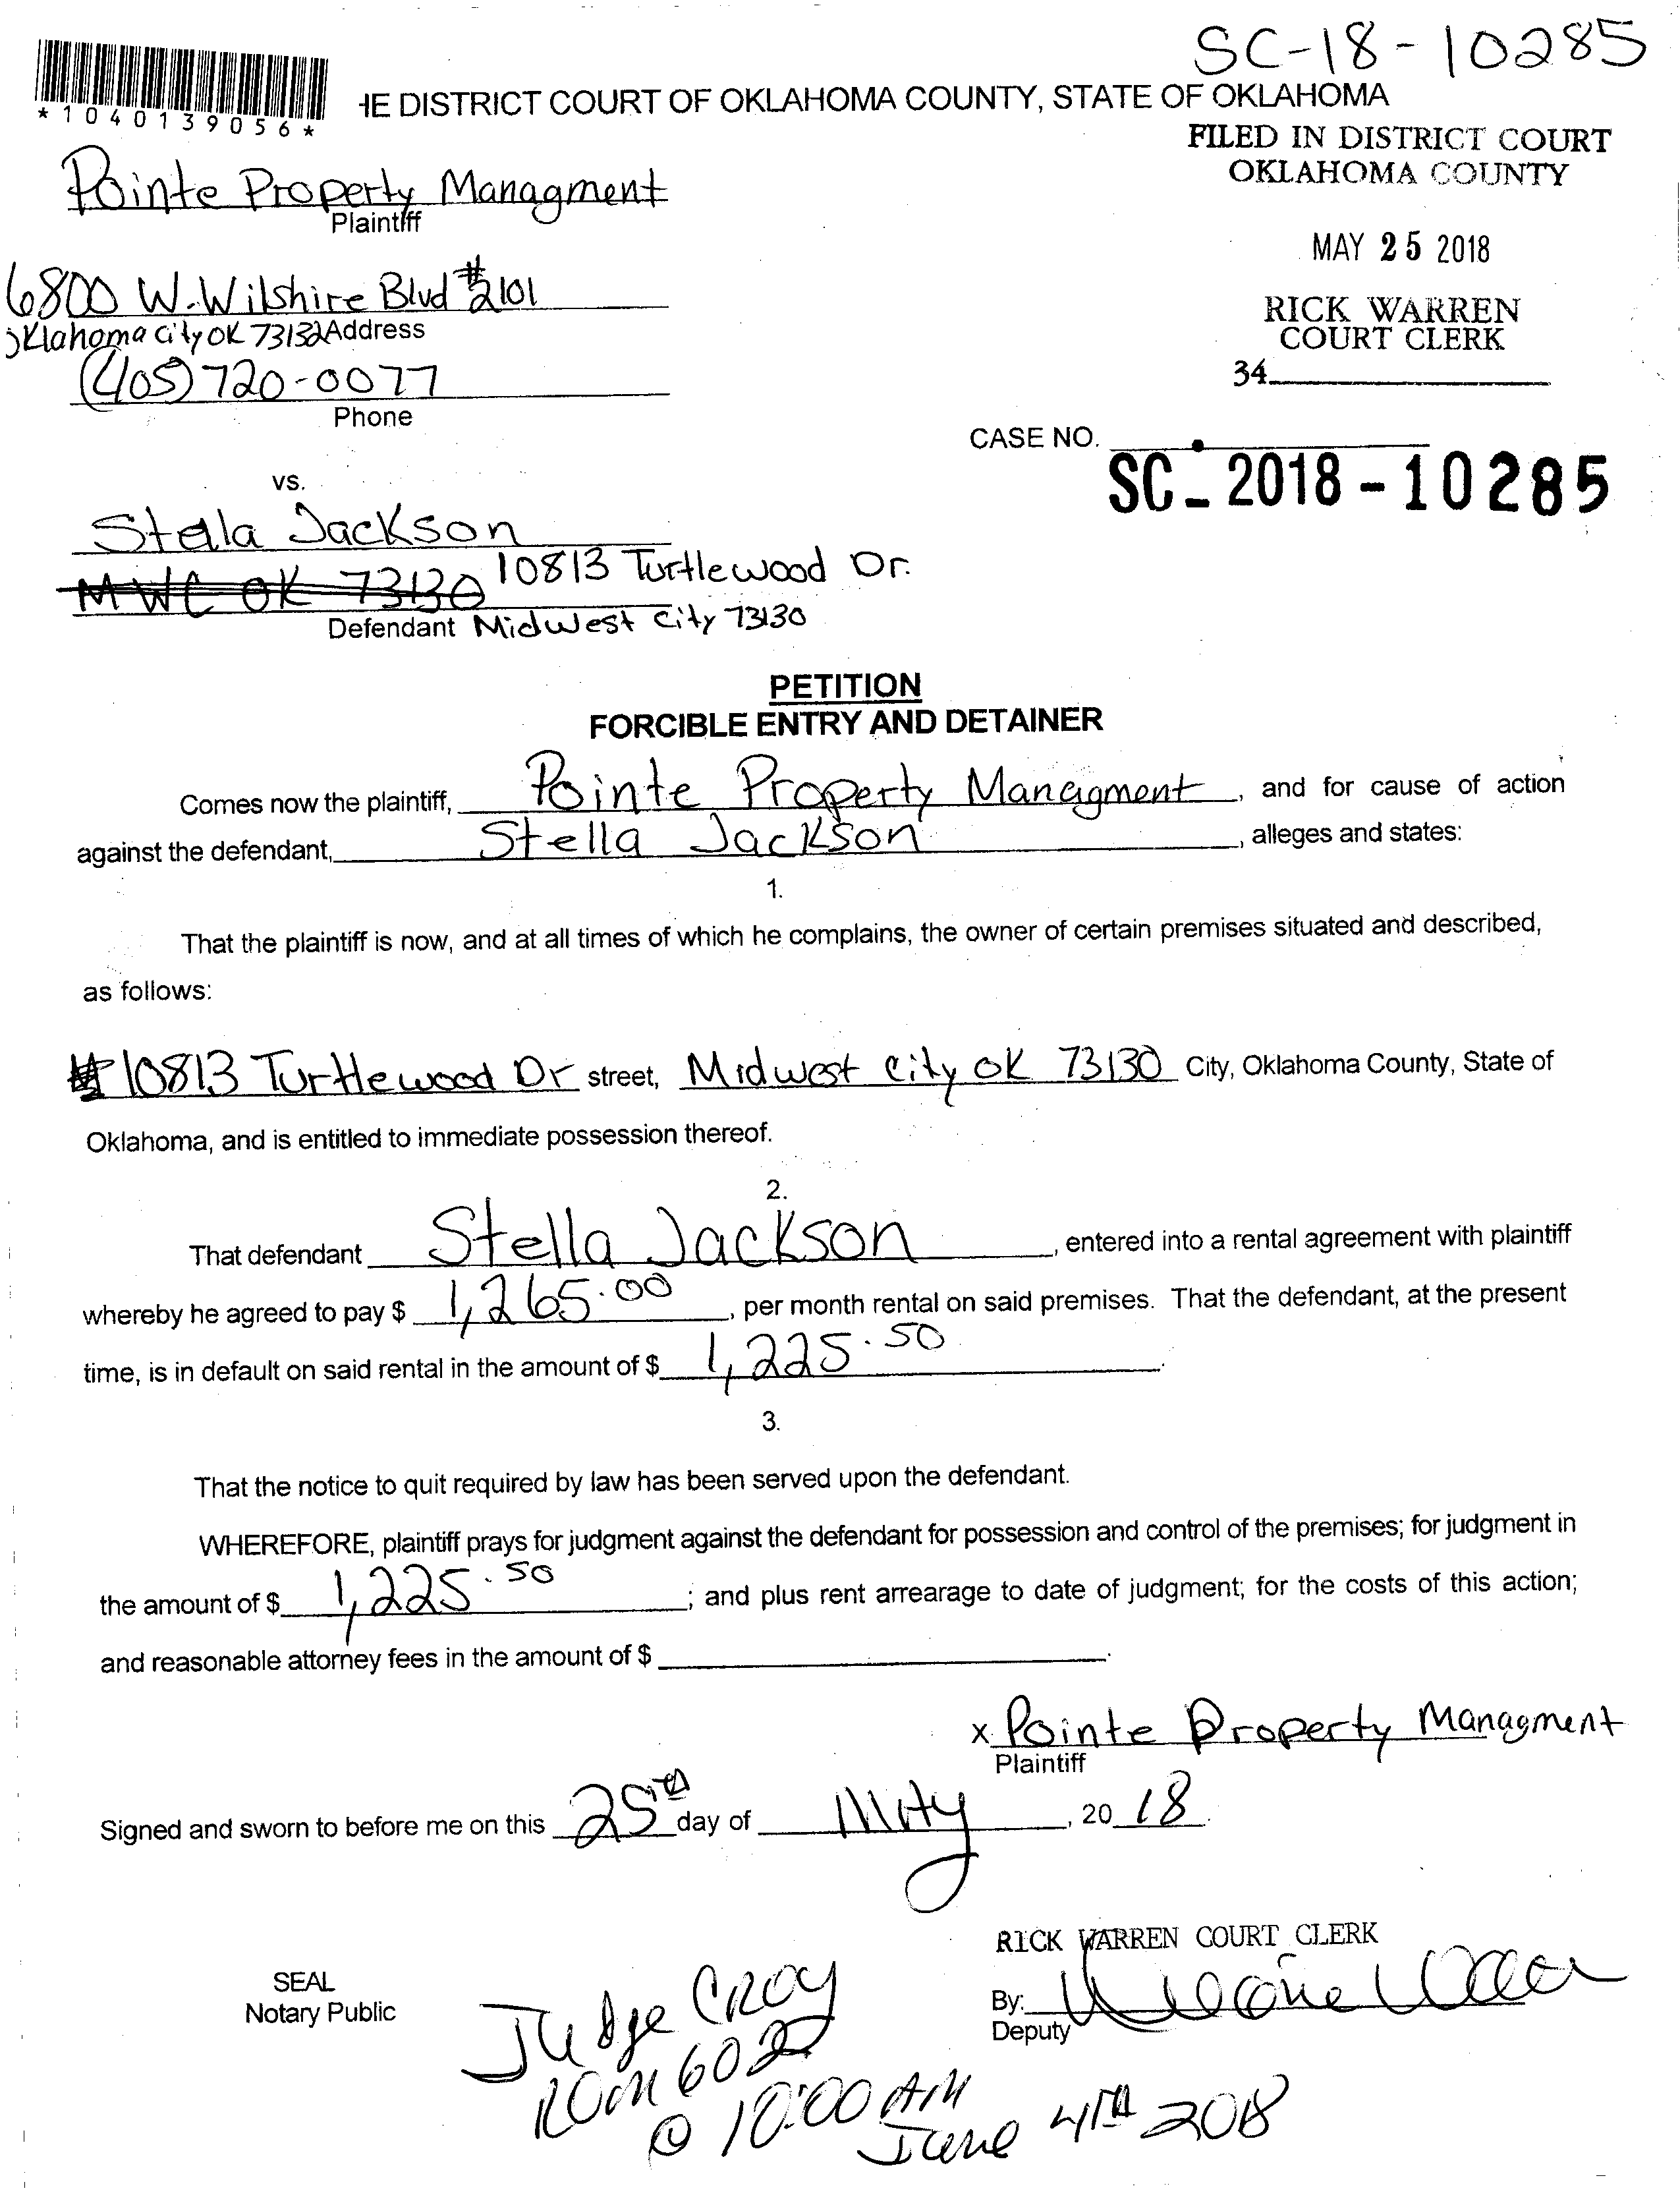 SC-18-10285
*1040139056*
HE DISTRICT COURT OF OKLAHOMA COUNTY, STATE OF OKLAHOMA
FILED IN DISTRICT COURT
OKLAHOMA COUNTY
Pointe Property Managment
Plaintiff
MAY 25 2018
6800 W. Wilshire Blvd #2101
Oklahoma City OK 73132 Address
RICK WARREN
COURT CLERK
(405) 720-0077
34
Phone
CASE NO.
SC-2018-10285
vs.
Stella Jackson
MWC OK 73130 10813 Turtlewood Dr.
Defendant Midwest City 73130
PETITION
FORCIBLE ENTRY AND DETAINER
Comes now the plaintiff, Pointe Property Managment, and for cause of action
against the defendant, Stella Jackson, alleges and states:
1.
That the plaintiff is now, and at all times of which he complains, the owner of certain premises situated and described,
as follows:
10813 Turtlewood Dr street, Midwest City OK 73130 City, Oklahoma County, State of
Oklahoma, and is entitled to immediate possession thereof.
2.
That defendant Stella Jackson, entered into a rental agreement with plaintiff
whereby he agreed to pay $ 1,265.00, per month rental on said premises. That the defendant, at the present
time, is in default on said rental in the amount of $ 1,225.50.
3.
That the notice to quit required by law has been served upon the defendant.
WHEREFORE, plaintiff prays for judgment against the defendant for possession and control of the premises; for judgment in
the amount of $ 1,225.50; and plus rent arrearage to date of judgment; for the costs of this action;
and reasonable attorney fees in the amount of $ .
x Pointe Property Managment
Plaintiff
Signed and sworn to before me on this 25th day of May, 2018.
RICK WARREN COURT CLERK
SEAL
Notary Public
By:
Deputy
Judge CROY
ROOM 602
@ 10:00 AM
June 4TH 2018